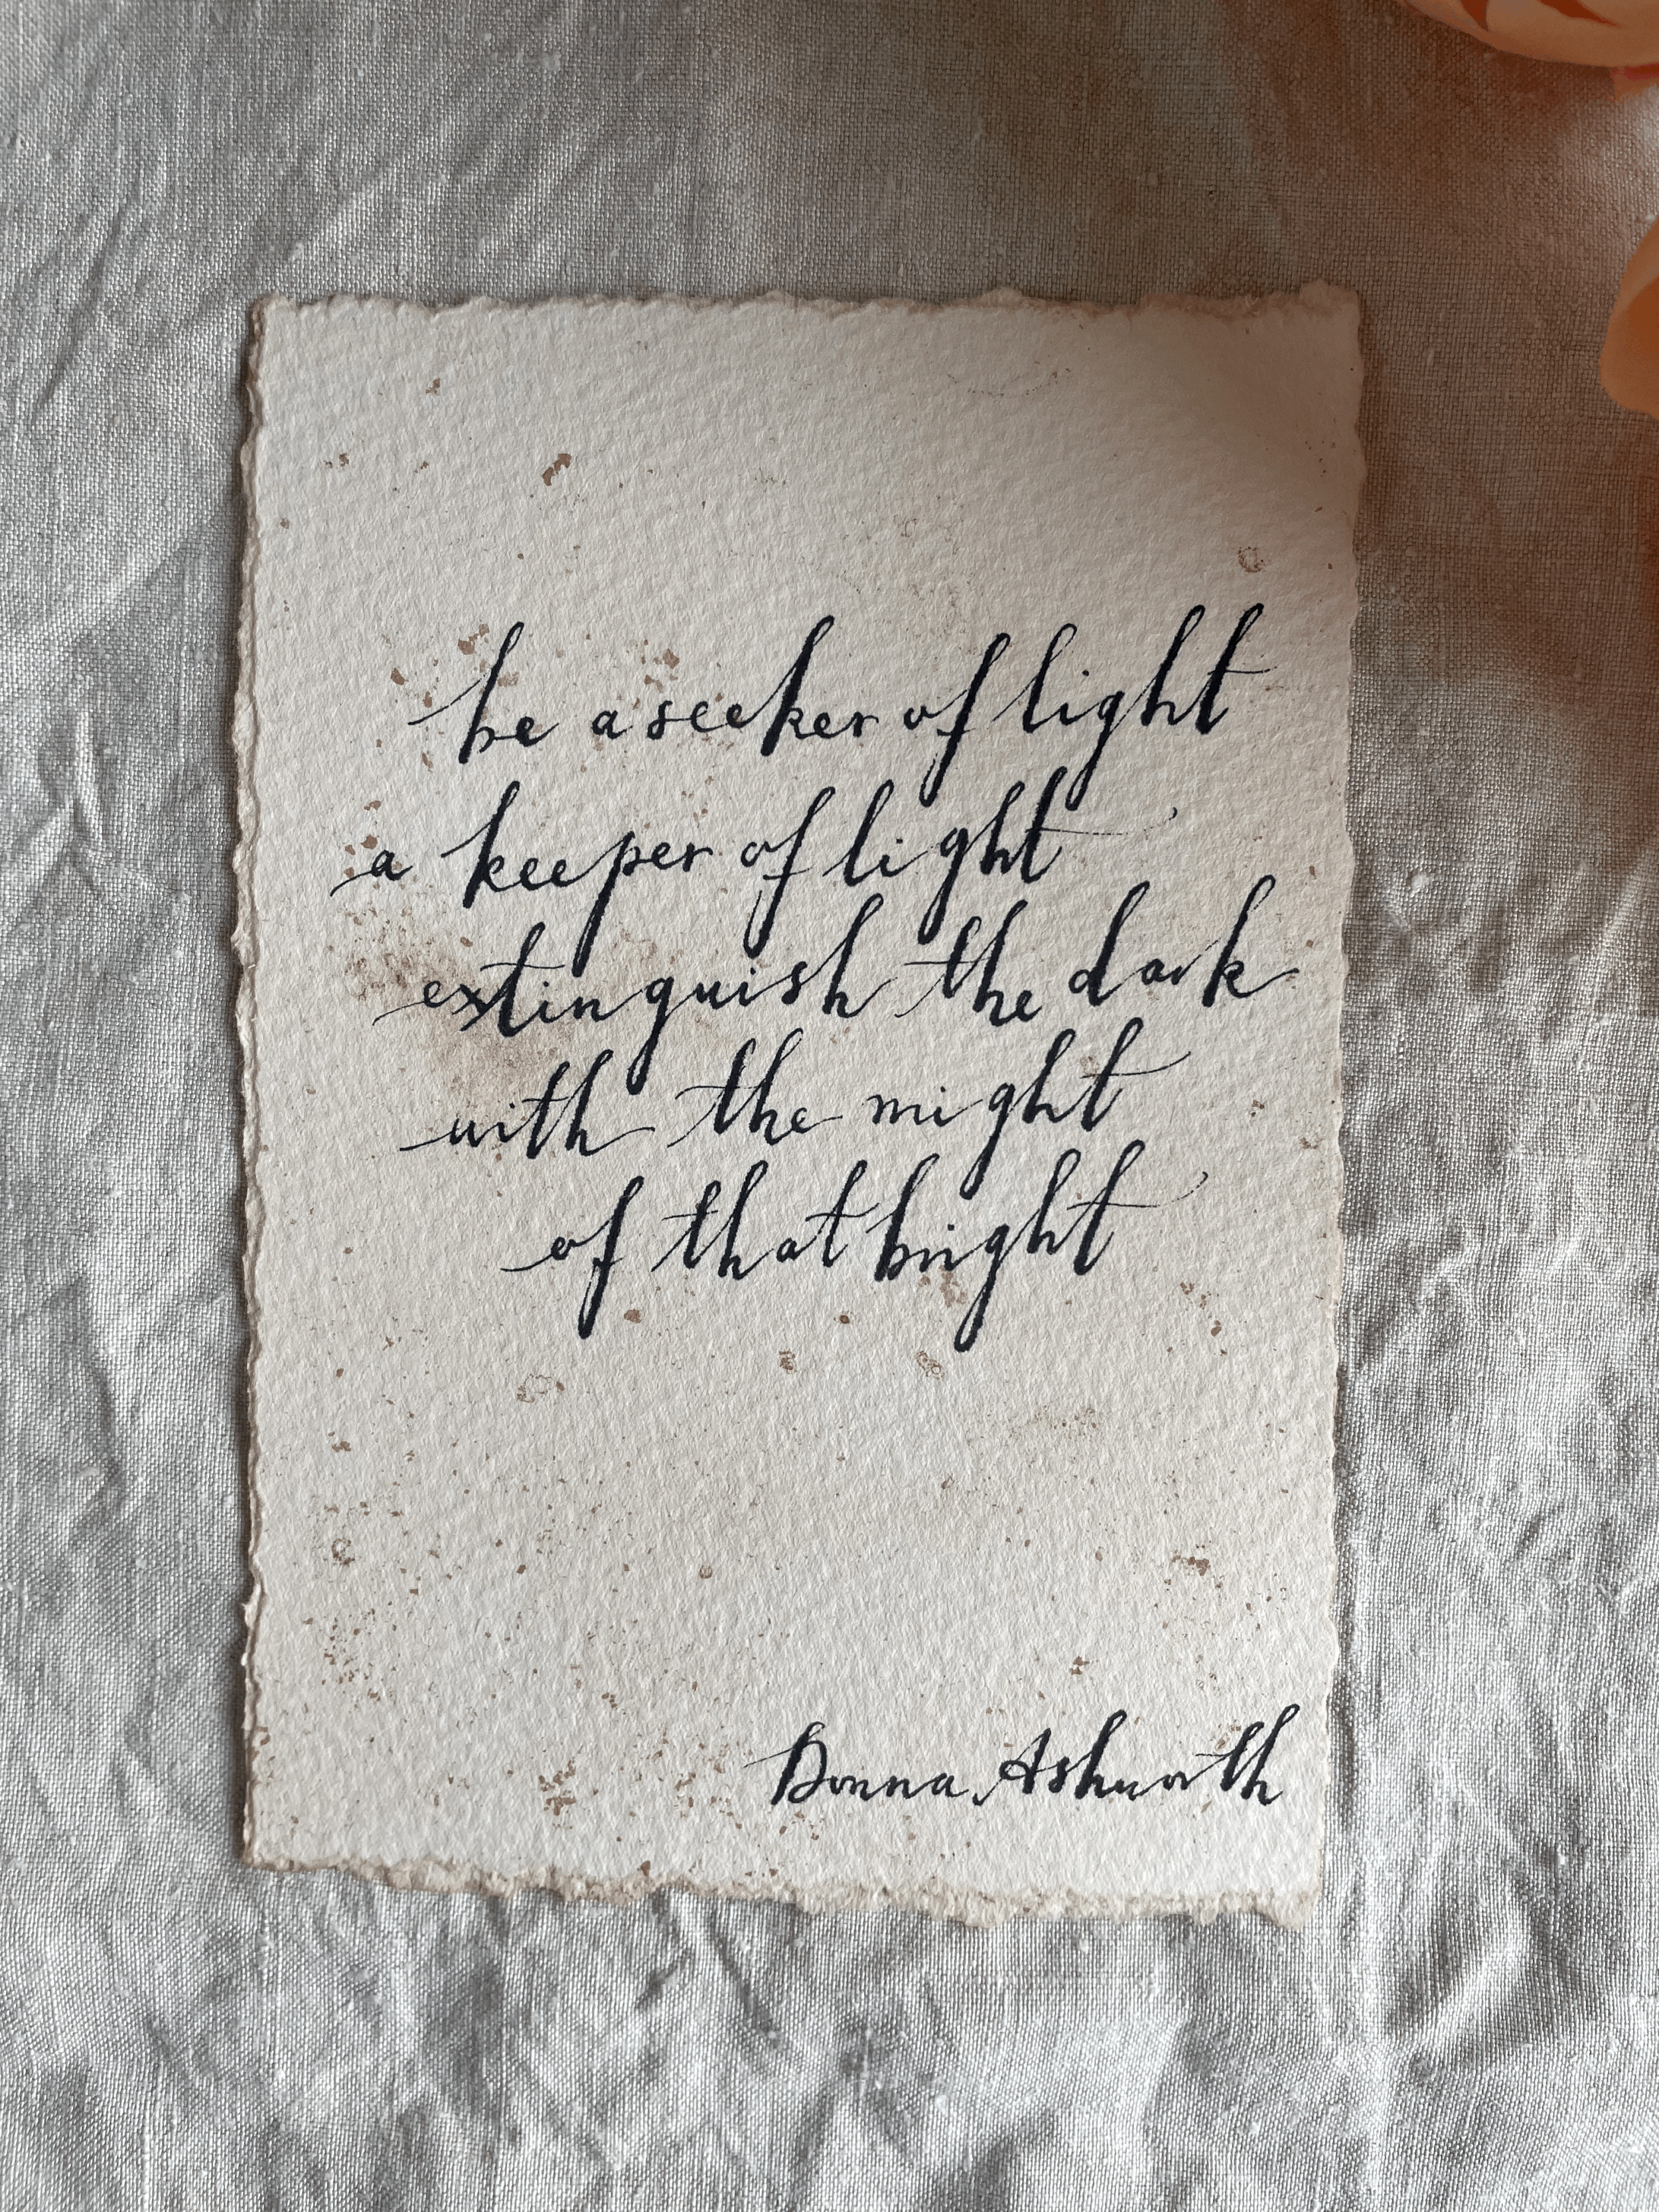 be a seeker of light
a keeper of light
extinguish the dark
with the might
of that bright
Donna Ashworth